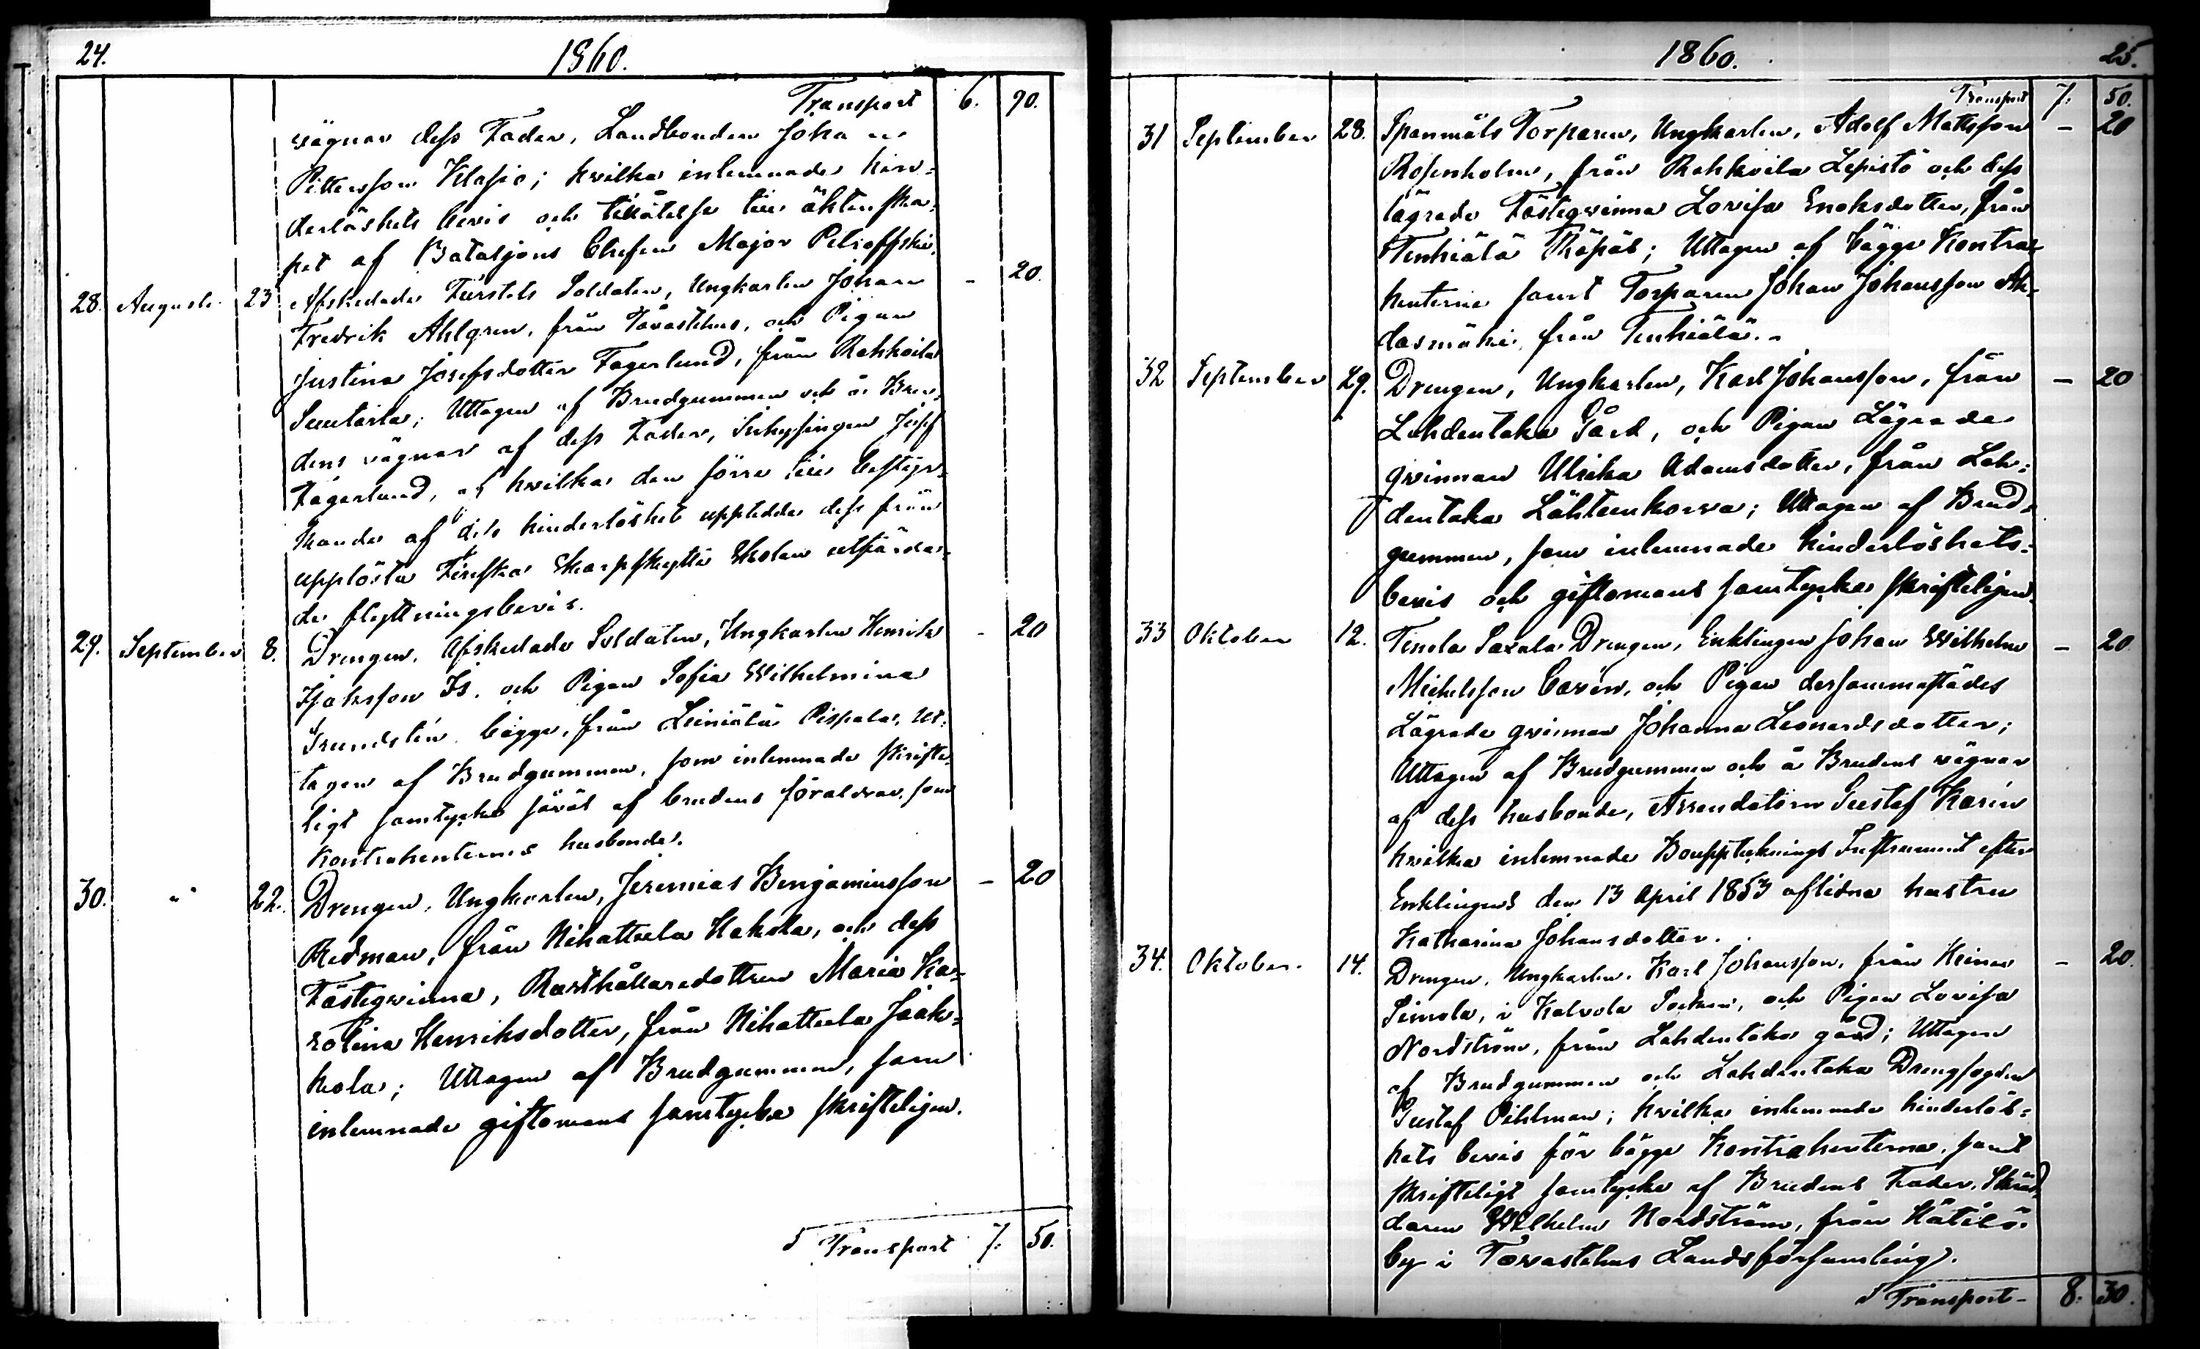 24. 1860.
Transport 6. 90.
vägnar dess Fader, Landbonden Johan
Pettersson Klasie; hvilka inlemnade hin-
derlöshets bevis och tillåtelse till äktenska-
pet af Bataljons Chefen Major Petroffski.
28. Augusti 23 Afskedade Soldaten, Ungkarlen Johan - 20.
Fredrik Ahlgren, från Tavastehus, och Pigan
Justina Josefsdotter Fagerlund, från Rahkoila
Uttagen af Brudgummen och å Bru-
dens vägnar af dess Fader, Inhysingen Josef
Fagerlund, af hvilka den förre till bestyr-
kande af dess hinderlöshet uppteedde dess från
upplösta Finska Skarpskytte Skolan utfärda-
de flyttningsbevis.
29. September 8. Drengen, Afskedade Soldaten, Ungkarlen Henrik - 20
Isaksson Is. och Pigan Sofia Wilhelmina
Grundstén bägge, från Leiniälä Pispala, Ut-
tagen af Brudgummen, som inlemnade skrifte-
ligt samtycke såväl af brudens föräldrar, som
Kontrahenternes husbonde.
30. " 22. Drengen, Ungkarlen, Jeremias Benjaminsson - 20
Redman, från Nihattula Hakola, och dess
Fästeqvinna, Rusthållaredottren Maria Ka-
rolina Henriksdotter, från Nihattula Jaak-
kola; Uttagen af Brudgummen, som
inlemnade giftomans samtycke skrifteligen.
Transport 7. 50.
1860. 25.
Transport 7. 50.
31 September 28. Spanmåls Torparen, Ungkarlen, Adolf Mattsson - 20
Rosenholm, från Rahkoila Lepistö och dess
lägrade Fästeqvinna Lovisa Enoksdotter, från
Tenhiälä Uttagen af bägge Kontra-
henterne samt Torparen Johan Johansson Ah-
dasmäki från Tenhiälä.
32 September 29. Drengen, Ungkarlen, Karl Johansson, från - 20
Lahdentaka Gård, och Pigan Lägrade
qvinnan Ulrika Adamsdotter, från Lah-
dentaka Lähteenkorva; Uttagen af Brud-
gummen, som inlemnade hinderlöshets-
bevis och giftomans samtycke skrifteligen.
33 Oktober 12. Saxala Drengen, Enklingen Johan Wilhelm - 20
Michelsson Cavén, och Pigan dersammastädes
Lägrade qvinnan Johanna Leonardsdotter;
Uttagen af Brudgummen och å Brudens vägnar
af dess husbonde, Arrendatorn Gustaf Karén
hvilka inlemnade Bouppteknings Instrument efter
Enklingens den 13 April 1853 aflidna hustru
Katharina Johansdotter.
34. Oktober. 14. Drengen, Ungkarlen, Karl Johansson, från Heinu - 20.
Simola, i Kalvola Socken, och Pigan Lovisa
Nordström, från Lahdentaka gård; Uttagen
af Brudgummen och Lahdentaka Drengfogden
Gustaf Pihlman; hvilka inlemnade hinderlös-
hets bevis för bägge Kontrahenterna, samt
skrifteligt samtycke af Brudens Fader, Skräd-
daren Wilhelm Nordström, från Hätilä
by i Tavastehus Landsförsamling.
Transport - 8. 30.